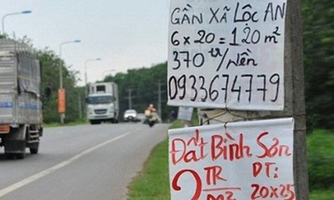 GẦN XÃ LỘC AN
6 x 20 = 120 m²
370 tr/NỀN
0933674779
Đất BÌNH SƠN
2 TR ĐT:
m² 20x25